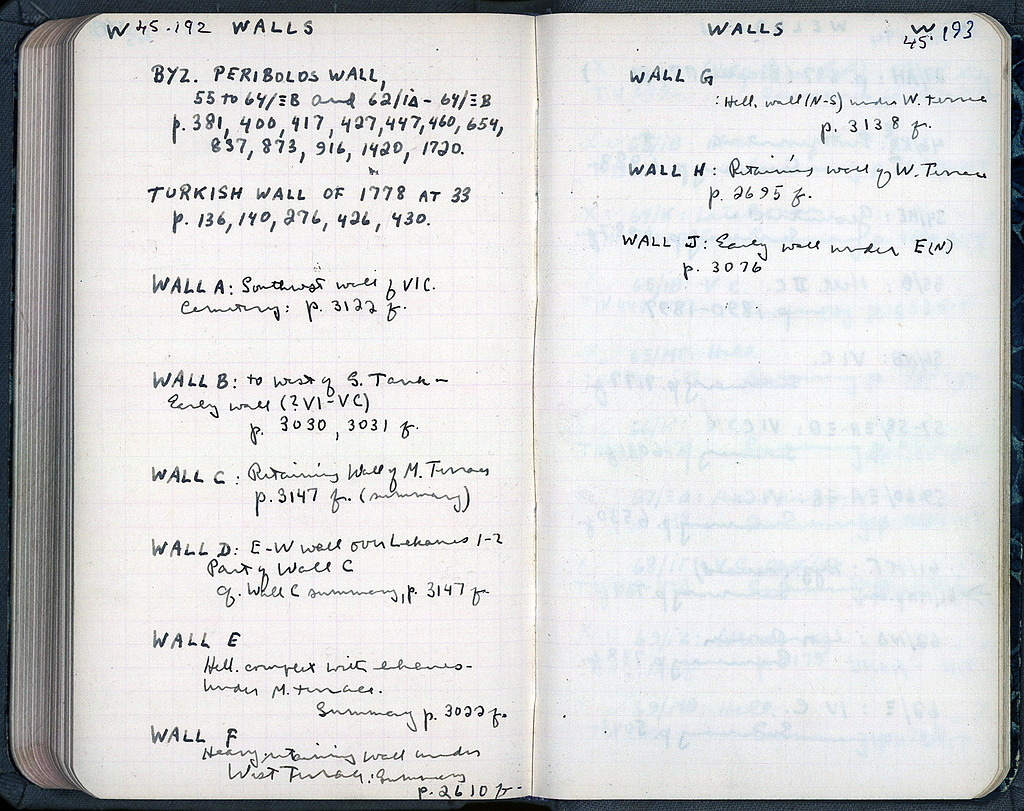 W 45.192 WALLS
BYZ. PERIBOLOS WALL,
55 to 64/ΞB and 62/ΙΔ - 64/ΞB
p. 381, 400, 417, 427, 447, 460, 654,
837, 873, 916, 1420, 1720.
TURKISH WALL OF 1778 AT 33
p. 136, 140, 276, 426, 430.
WALL A: Southwest wall of VI C.
Cemetery: p. 3122 f.
WALL B: to west of S. Tank -
Early wall (? VI-VC)
p. 3030, 3031 f.
WALL C: Retaining Wall of M. Terrace
p. 3147 f. (summary)
WALL D: E-W wall over Lekanes 1-2
Part of Wall C
cf. Wall C summary, p. 3147 f.
WALL E
Hell. complex with lekanes -
under M. terrace.
Summary p. 3022 f.
WALL F
Heavy retaining wall under
West Terrace: Summary
p. 2610 f.
WALLS W 45.193
WALL G
: Hell. wall (N-S) under W. Terrace
p. 3138 f.
WALL H: Retaining wall of W. Terrace
p. 2695 f.
WALL J: Early wall under E(N)
p. 3076